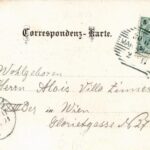 Correspondenz-Karte.
Wohlgeboren
Herrn Alois Villa
in Wien
Glorietgasse N 27